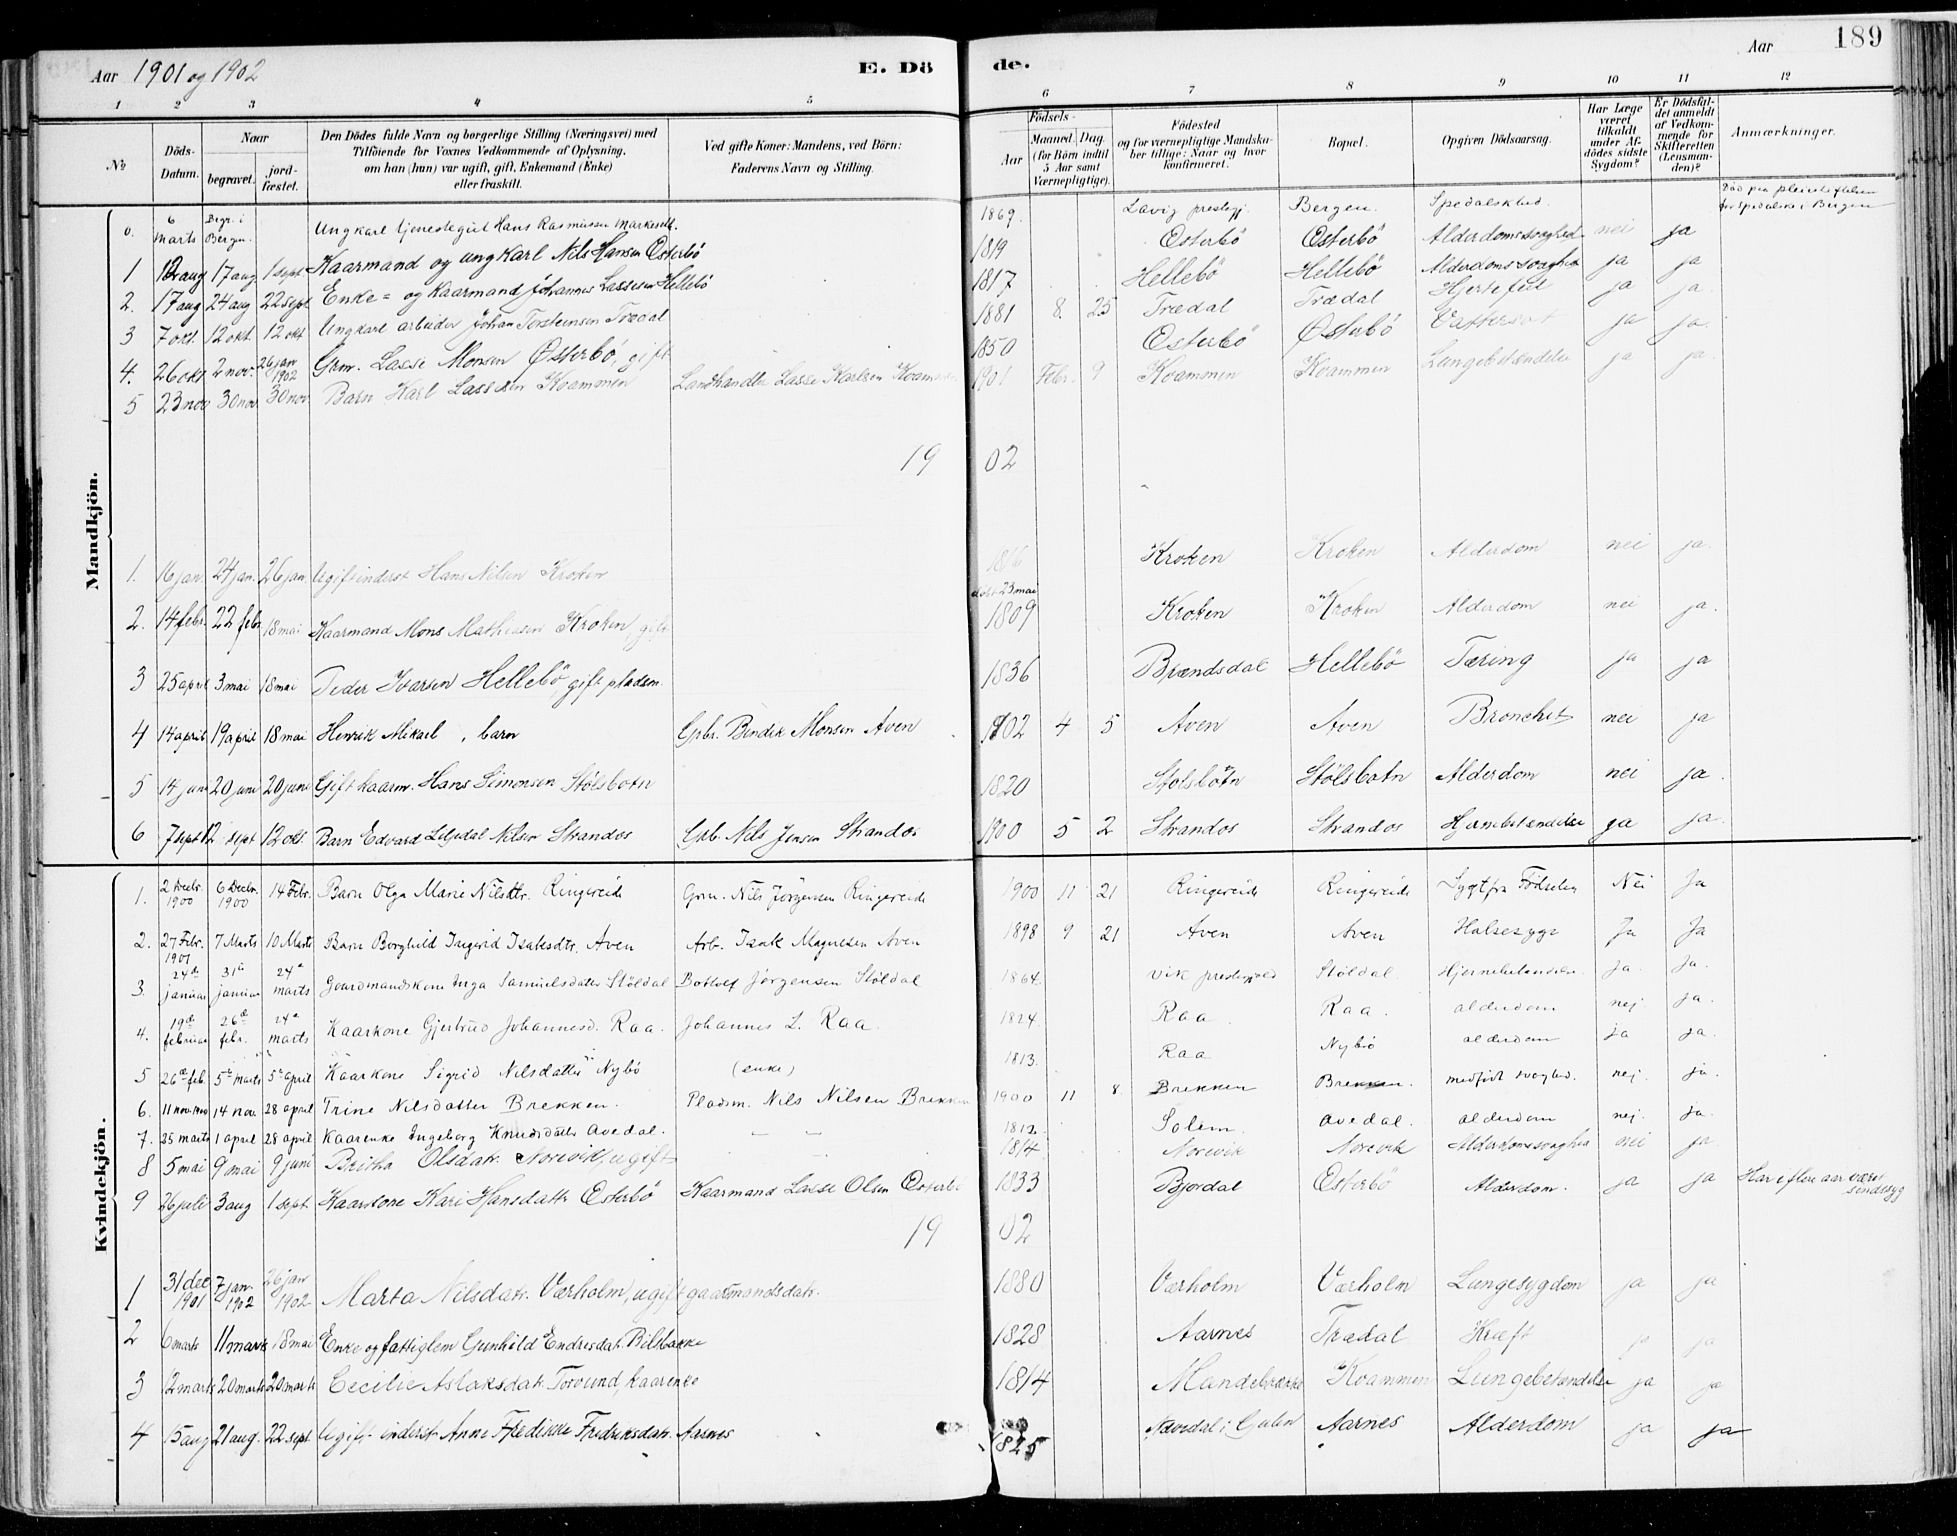 Aar 1901 og 1902 E. Dö de. Aar 189
1 2 3 4 5 6 7 8 9 10 11 12
No Döds-Datum. Naar begravet. jord-fæstet. Den Dödes fulde Navn og borgerlige Stilling (Næringsvei) med Tilföiende for Voxnes Vedkommende af Oplysning, om han (hun) var ugift, gift, Enkemand (Enke) eller fraskilt. Ved gifte Koner: Mandens, ved Börn: Faderens Navn og Stilling. Födsels- Aar Maaned. Dag. (for Börn indtil 5 Aar samt Værnepligtige). Födested og for værnepligtige Mandskaber tillige: Naar og hvor konfirmeret. Bopæl. Opgiven Dödsaarsag. Har Læge været tilkaldt under Afdödes sidste Sygdom? Er Dödsfaldet anmeldt af Vedkommende for Skifteretten (Lensmanden)? Anmærkninger.
Mandkjön.
0. 6 marts Begr. i Bergen. Ungkarl tjenestegut Hans Rasmussen 1869. Lavig prestegj. Bergen. Spedalskhed. Död paa pleiestiftelsen for spedalske i Bergen
1 12 aug 17 aug 1 sept Kaarmand og ungkarl Nils Hansen Østerbö 1819 Østerbö Østerbö Alderdomssvaghed nei ja
2. 17 aug 24 aug 22 sept Enke- og kaarmand Johannes Lassesen Hellebö 1817 Hellebö Hellebö Alderdomssvaghed ja ja
3 7 okt. 12 okt. 12 okt Ungkarl arbeider Johan Torsteinsen Trædal 1881 8. 25 Trædal Trædal Hjertefeil ja ja.
4. 26 okt 2 nov. 26 jan 1902 Grm. Lasse Monsen Østerbö, gift 1850 Østerbö Østerbö Vattersot ja ja.
5 23 nov 30 nov. 30 nov. Barn Karl Lassesen Kvammen Landhandler Lasse Karlsen Kvammen 1901 Febr. 9 Kvammen Kvammen Lungebetændelse ja ja.
19 02
1. 16 jan. 24 jan. 26 jan. Ugift inderst Hans Nilsen Kroken 1816 Kroken Kroken Alderdom nei ja.
2. 14 febr. 22 febr 18 mai Kaarmand Mons Mathiesen Kroken, gift döbt 23 mai 1809 Kroken Kroken Alderdom nei ja.
3 25 april 3 mai 18 mai Peder Ivarsen Hellebö, gift pladsm. 1836 Brændsdal Hellebö Tæring ja ja
4 14 april 19 april 18 mai Henrik Mikael, barn Grbr. Bendik Monsen Aven 1902 4 5 Aven Aven Bronchit nei ja
5 14 juni 20 juni 20 juni Gift kaarm. Hans Simonsen Stölsbotn 1820 Stölsbotn Stölsbotn Alderdom nei ja.
6 7 sept 12 sept 12 okt. Barn Edvard Liljedal Nilsen Strandos Grb. Nils Jensen Strandos 1900 5 2 Strandos Strandos Hjernebetændelse ja ja.
Kvindekjön.
1. 2 Decbr. 1900 6 Decbr. 1900 14 Febr. Barn Olga Marie Nilsdtr. Ringereide Grm. Nils Jörgensen Ringereide 1900 11 21 Ringereide Ringereide Sygt fra Födselen Nei Ja
2. 27 Febr. 1901 7 Marts 10 Marts Barn Borghild Ingerid Isaksdtr. Aven Arb. Isak Magnesen Aven 1898 9 21 Aven Aven Halsesyge Ja Ja
3. 24de januar 31te januar 24de marts Gaardmandskone Inga Samuelsdatter Stöldal Botholf Jörgensen Stöldal 1864. Vik prestegjeld Stöldal Hjernebetændelse. Ja. Ja.
4. 19de februar 26de febr. 24de marts Kaarkone Gjertrud Johannesd. Raa. Johannes L. Raa. 1824. Raa. Raa. alderdom nej ja.
5 26de feb. 5te marts 5te april Kaarkone Sigrid Nilsdatter Nybö (enke) 1813. Raa Nybö alderdom ja ja.
6. 11 nov. 1900 14 nov. 28 april Trine Nilsdatter Brekken. Pladsm. Nils Nilsen Brekken 1900 11 8. Brekken Brekken. medfödt svaghed. nej. ja.
7. 25 marts 1 april 28 april Kaarenke Ingeborg Knudsdatter Avedal. 1812. Solem. Avedal. alderdom nej. ja.
8 5 mai 9 mai 9 juni Britha Olsdatr. Norevik, ugift 1814 Norevik Norevik Alderdomssvaghed nei ja.
9 26 juli 3 aug 1 sept. Kaarkone Kari Hansdattr Østerbö Kaarmand Lasse Olsen Østerbö 1833 Bjordal Østerbö Alderdom. ja ja Har i flere aar været sindssyg
19 02
1 31 dec 1901 7 jan. 1902 26 jan 1902 Marta Nilsdatr. Værholm, ugift gaarmandsdatr. 1880 Værholm Værholm Lungesygdom ja ja
2 6 marts 11 marts 18 mai Enke og fattiglem Gunhild Endresdatr. 1828 Aarnes Trædal Kræft ja ja
3 12 marts 20 marts 20 marts Cecilie Aslaksdatr. Torvund, kaarenke 1814 Kvammen Lungebetændelse ja ja
4 15 aug 21 aug. 22 sept. Ugift inderst Anne Fredikke Fredriksdatr. Aarnes 1825 Nævedal i Gulen Aarnes Alderdom ja ja